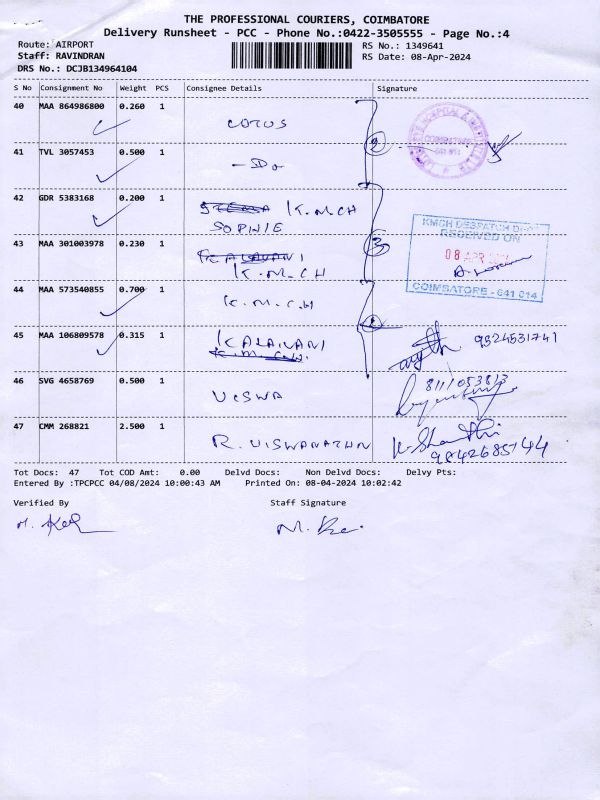 THE PROFESSIONAL COURIERS, COIMBATORE
Delivery Runsheet - PCC - Phone No.:0422-3505555 - Page No.:4
Route: AIRPORT RS No.: 1349641
Staff: RAVINDRAN RS Date: 08-Apr-2024
DRS No.: DCJB134964104
S No Consignment No Weight PCS Consignee Details Signature
40 MAA 864986800 0.260 1
LOTUS
41 TVL 3057453 0.500 1
-Do
2
42 GDR 5383168 0.200 1
K.M.CH
SOPHIE
43 MAA 301003978 0.230 1
KALAVANI
K.M.CH
3
KMCH DESPATCH
RECEIVED ON
08 APR
COIMBATORE - 641 014
44 MAA 573540855 0.700 1
K.M.C.H
45 MAA 106809578 0.315 1
KALAIVANI
K.M.C.H.
1
9524531741
46 SVG 4658769 0.500 1
VISWA
8111053813
47 CMM 268821 2.500 1
R. VISWANATHN
K. Shanthi
9842685744
Tot Docs: 47 Tot COD Amt: 0.00 Delvd Docs: Non Delvd Docs: Delvy Pts:
Entered By :TPCPCC 04/08/2024 10:00:43 AM Printed On: 08-04-2024 10:02:42
Verified By Staff Signature